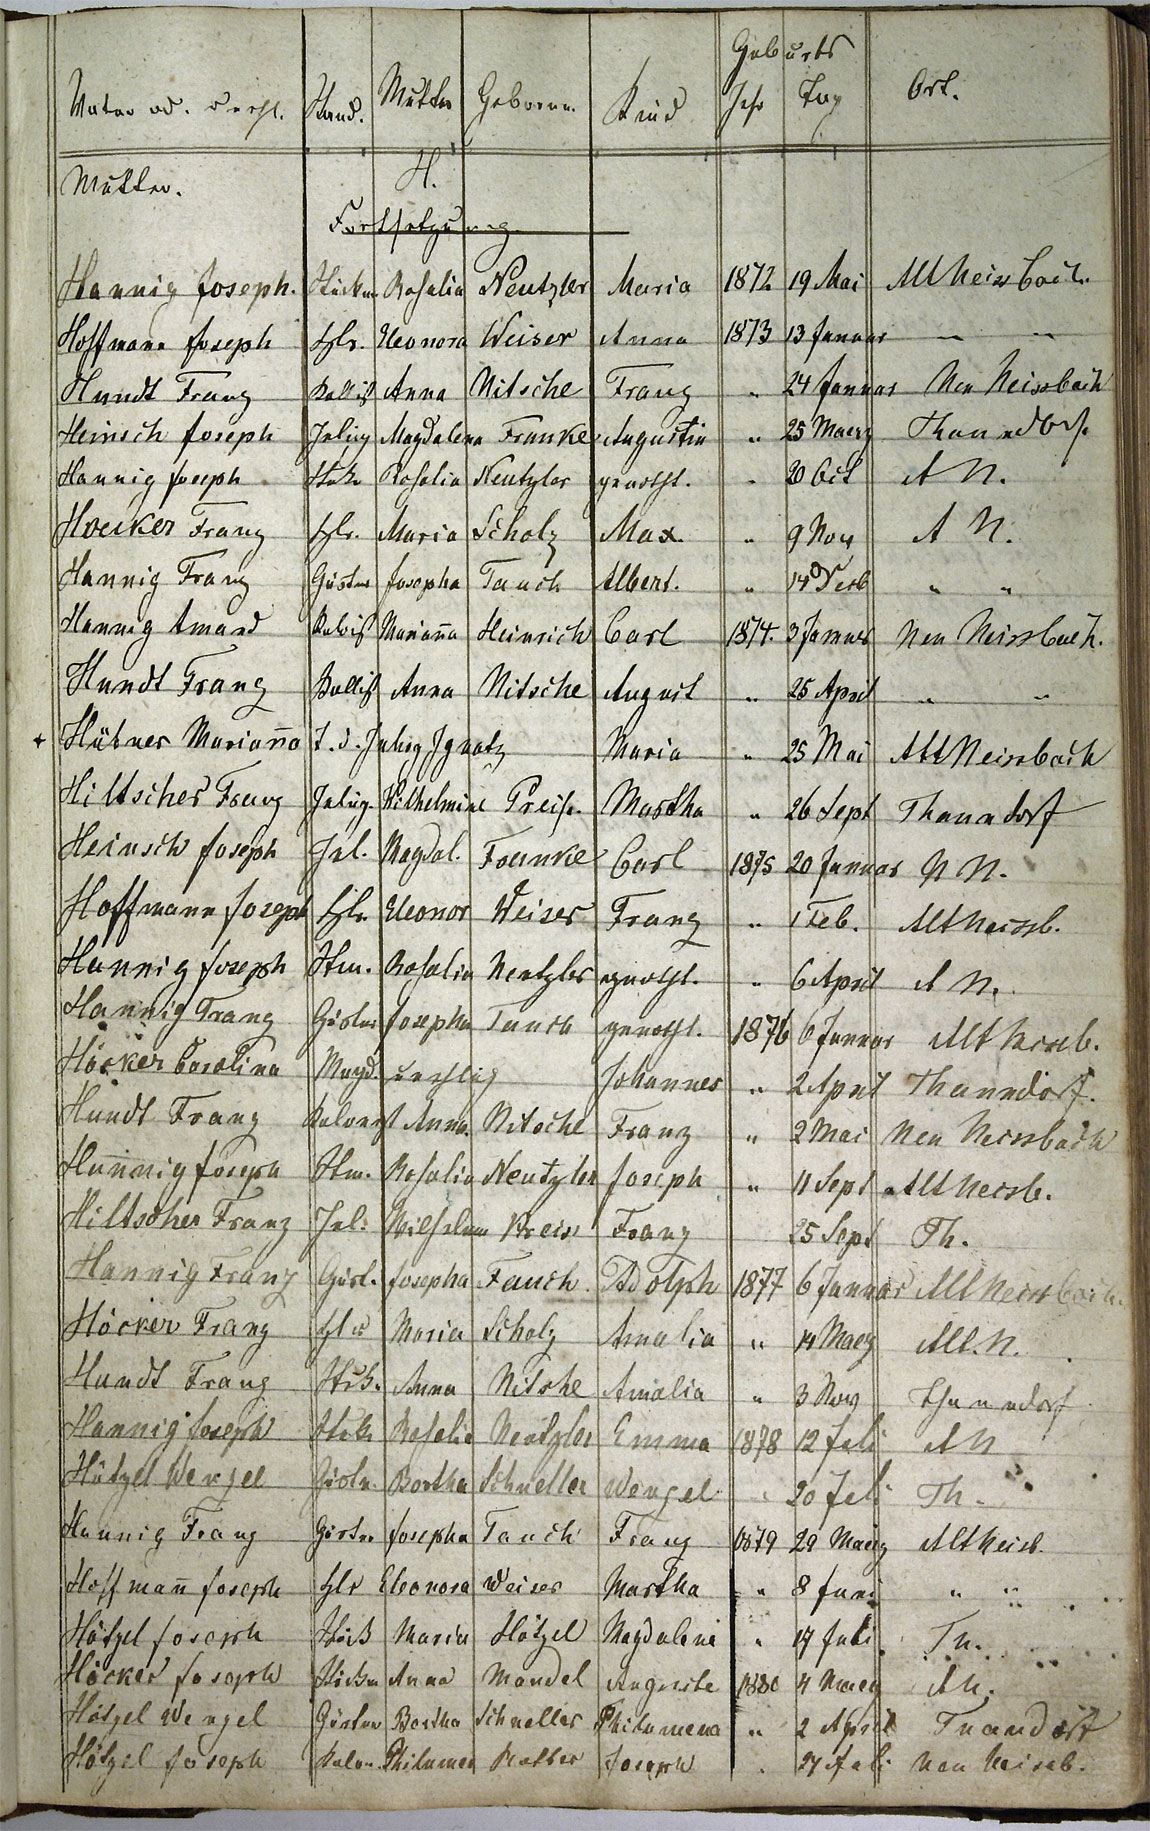 Geburts
Vater od. Stand. Mutter Geborene Kind Jahr Tag Ort.
Mutter. H.
Fortsetzung
Hannig Joseph. Rosalia Neutzler Maria 1872 19 Mai Alt Neissbach.
Hoffmann Joseph Hslr. Eleonora Weiser Anna 1873 13 Januar " "
Hundt Franz Anna Nitsche Franz " 24 Januar Neu Neissbach
Heinsch Joseph Magdalena Franke Augustin " 25 Maerz Thanndorf.
Hannig Joseph Rosalia Neutzler " 20 Oct A N.
Hoecker Franz Hslr. Maria Scholz Max. " 9 Nov A N.
Hannig Franz Gärtner Josepha Tauch Albert. " 14 Decb " "
Hannig Amand Marianna Heinrich Carl 1874. 3 Januar Neu Neissbach.
Hundt Franz Anna Nitsche August " 25 April " "
+ Hübner Marianna Ignatz Maria " 25 Mai Alt Neissbach
Hiltscher Franz Wilhelmine Preis. Martha " 26 Sept Thanndorf
Heinsch Joseph Magdal. Franke Carl 1875 20 Januar N N.
Hoffmann Joseph Hslr. Eleonor Weiser Franz " 1 Feb. Alt Neissb.
Hannig Joseph Rosalia Neutzler " 6 April A N.
Hannig Franz Gärtner Josepha Tauch 1876 6 Januar Alt Neissb.
Höcker Carolina Magd. Johannes " 2 April Thanndorf.
Hundt Franz Anna. Nitsche Franz " 2 Mai Neu Neissbach
Hannig Joseph Rosalia Neutzler Joseph " 11 Sept Alt Neissb.
Hiltscher Franz Preis Franz 25 Sept Th.
Hannig Franz Gärt. Josepha Tauch Adolph 1877 6 Januar Alt Neissbach.
Höcker Franz Hslr Maria Scholz Amalia " 14 Maerz Alt. N.
Hundt Franz Anna Nitshe Amalia " 3 Nov Thanndorf
Hannig Joseph Rosalia Neutzler Emma 1878 12 Juli A N
Hötzel Wenzel Gärtn. Bertha Schneller Wenzel 20 Juli Th.
Hannig Franz Gärtner Josepha Tauch Franz 1879 29 Maerz Alt Neisb.
Hoffmann Joseph Hslr Eleonora Weiser Martha " 8 Juni " "
Hötzel Joseph Maria Hötzel Magdalena " 17 Juli Th.
Höcker Joseph Anna Mandel Auguste 1880 4 Maerz A N.
Hötzel Wenzel Gärtner Bertha Schneller Philumena " 2 April Thanndorf
Hötzel Joseph Philumen Joseph . 27 Juli Neu Neiseb.